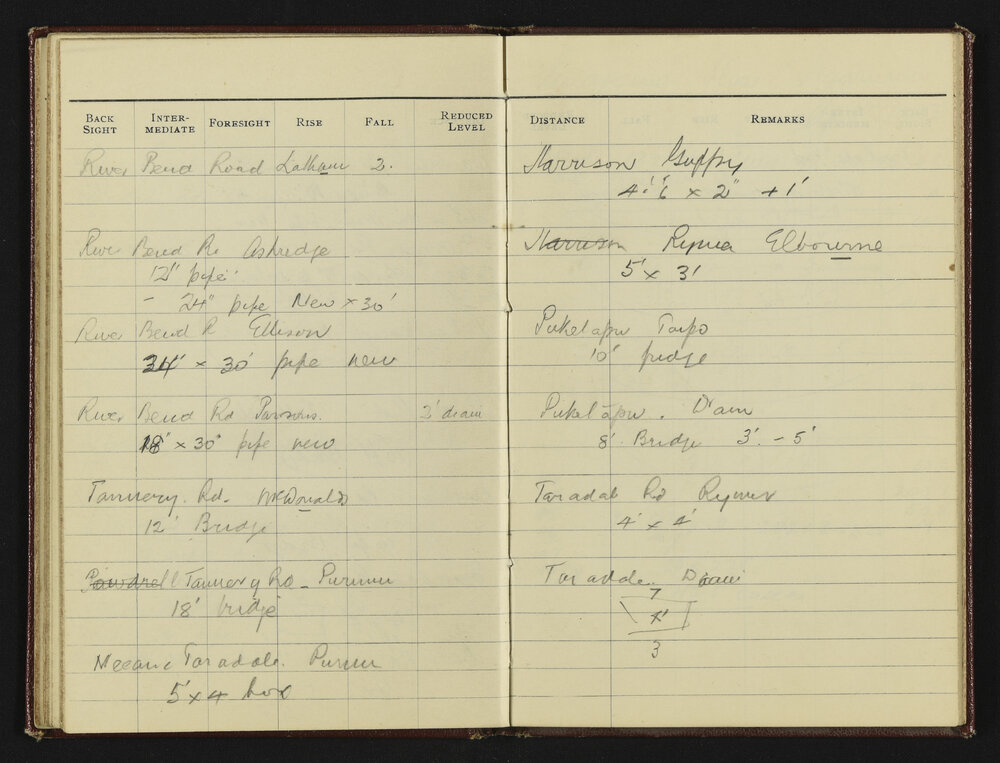 BACK SIGHT INTER-MEDIATE FORESIGHT RISE FALL REDUCED LEVEL
River Bend Road Latham 2.
River Bend Rd Ashridge
12" pipe
- 24" pipe New × 30'
River Bend R Ellison
24" × 30' pipe new
River Bend Rd Parsons. 3' drain
18" × 30" pipe new
Tannery. Rd. McDonalds
12' Bridge
Powdrell Tannery Rd - 
18' bridge
Meeanee Taradale.
5' × 4 box
DISTANCE REMARKS
Harrison Guppy
4' 6 × 2" + 1'
Harrison Elbourne
5' × 3'
Puketapu Taipo
10' bridge
Puketapu. Dam
8' Bridge 3' - 5'
Taradale Rd Rymer
4' × 4'
Taradale. Drain
7
4'
3